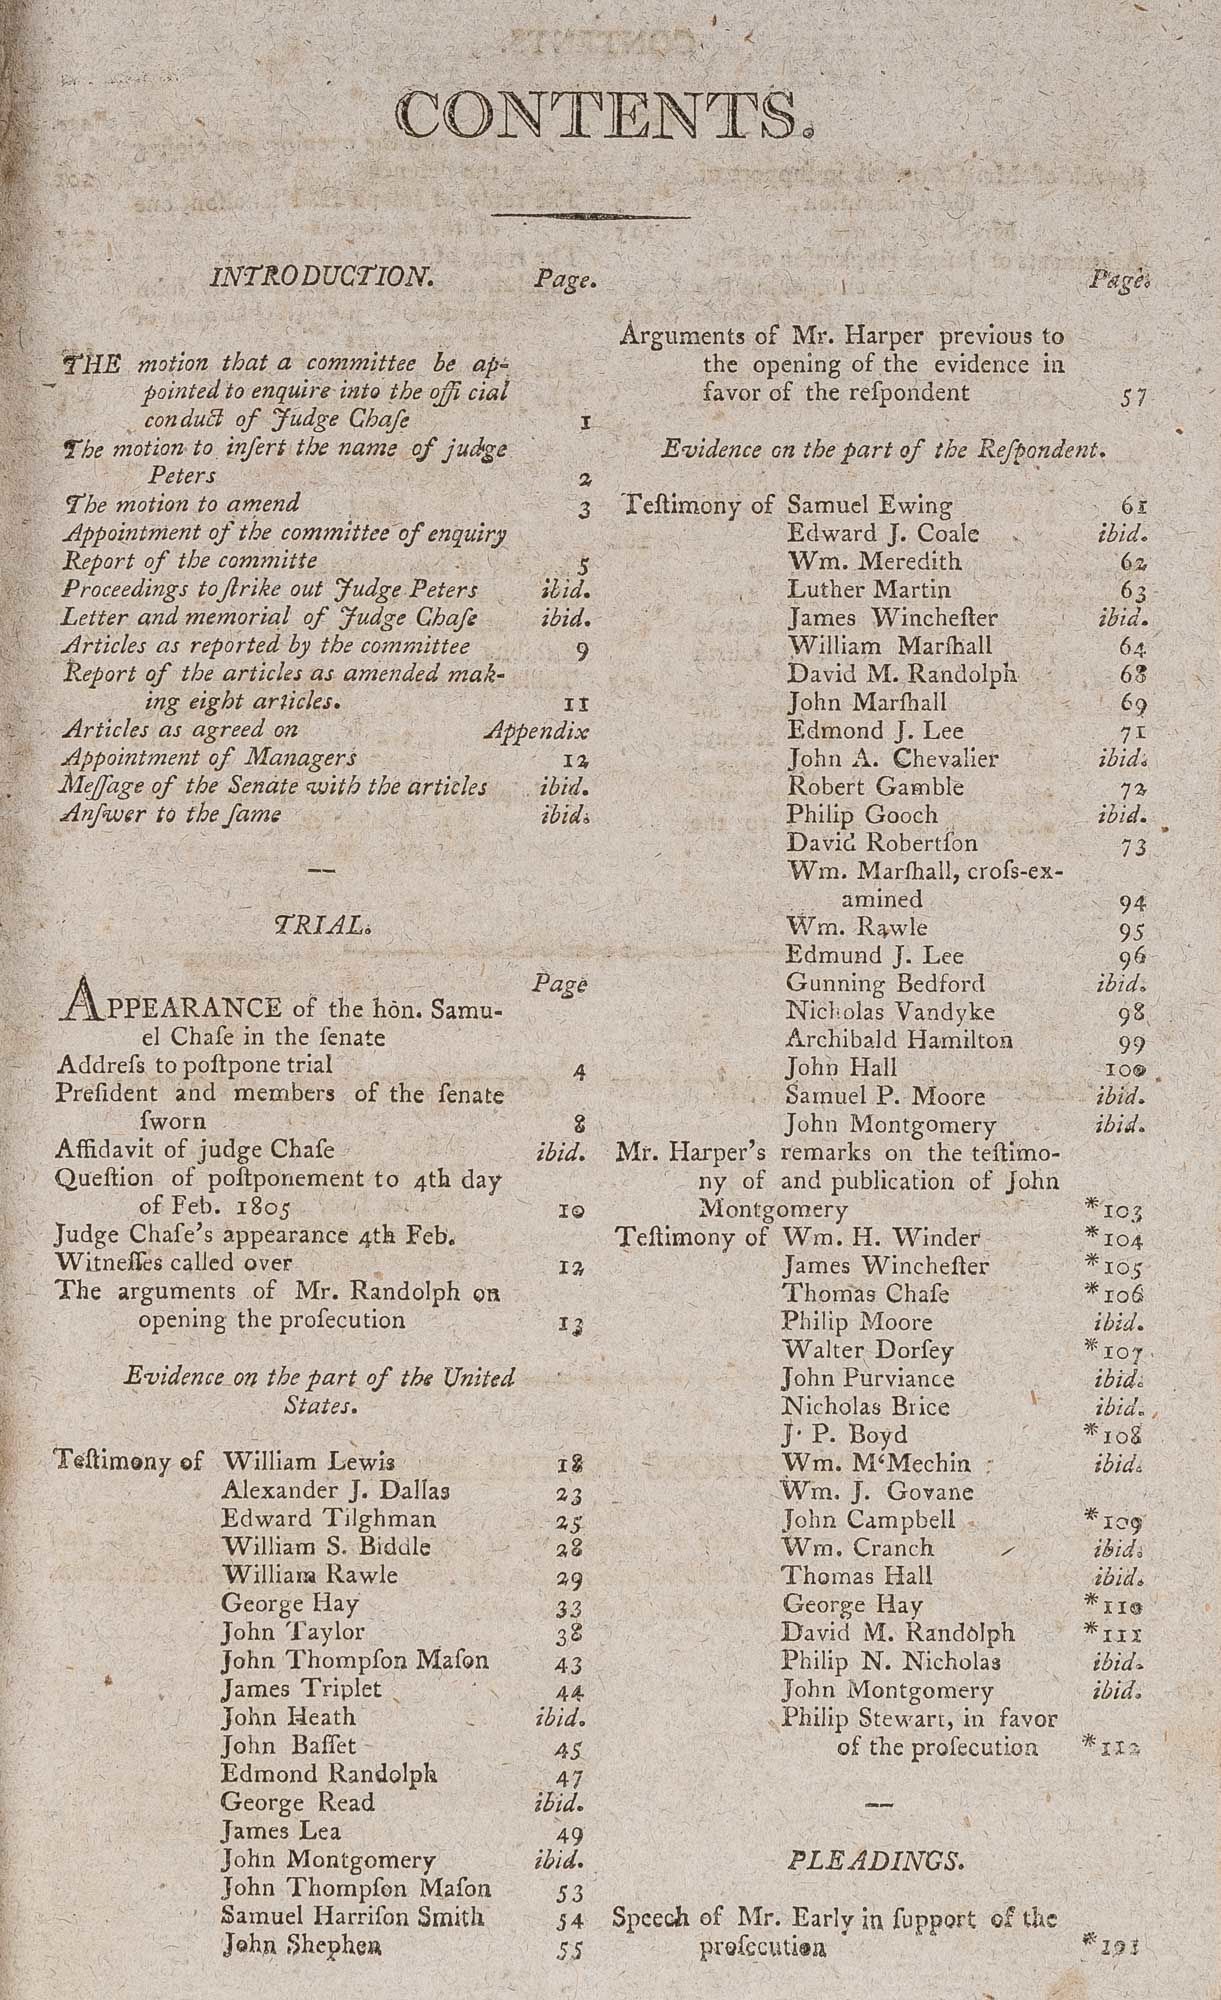 CONTENTS.
INTRODUCTION. Page.
THE motion that a committee be ap-
pointed to enquire into the offi cial
conduct of Judge Chaſe 1
The motion to inſert the name of judge
Peters 2
The motion to amend 3
Appointment of the committee of enquiry
Report of the committe 5
Proceedings to ſtrike out Judge Peters ibid.
Letter and memorial of Judge Chaſe ibid.
Articles as reported by the committee 9
Report of the articles as amended mak-
ing eight articles. 11
Articles as agreed on Appendix
Appointment of Managers 12
Meſſage of the Senate with the articles ibid.
Anſwer to the ſame ibid.
—
TRIAL.
Page
APPEARANCE of the hon. Samu-
el Chaſe in the ſenate
Addreſs to poſtpone trial 4
Preſident and members of the ſenate
ſworn 8
Affidavit of judge Chaſe ibid.
Queſtion of poſtponement to 4th day
of Feb. 1805 10
Judge Chaſe's appearance 4th Feb.
Witneſſes called over 12
The arguments of Mr. Randolph on
opening the proſecution 13
Evidence on the part of the United
States.
Teſtimony of William Lewis 18
Alexander J. Dallas 23
Edward Tilghman 25
William S. Biddle 28
William Rawle 29
George Hay 33
John Taylor 38
John Thompſon Maſon 43
James Triplet 44
John Heath ibid.
John Baſſet 45
Edmond Randolph 47
George Read ibid.
James Lea 49
John Montgomery ibid.
John Thompſon Maſon 53
Samuel Harriſon Smith 54
John Shephen 55
Page.
Arguments of Mr. Harper previous to
the opening of the evidence in
favor of the reſpondent 57
Evidence on the part of the Reſpondent.
Teſtimony of Samuel Ewing 61
Edward J. Coale ibid.
Wm. Meredith 62
Luther Martin 63
James Wincheſter ibid.
William Marſhall 64
David M. Randolph 68
John Marſhall 69
Edmond J. Lee 71
John A. Chevalier ibid.
Robert Gamble 72
Philip Gooch ibid.
David Robertſon 73
Wm. Marſhall, croſs-ex-
amined 94
Wm. Rawle 95
Edmund J. Lee 96
Gunning Bedford ibid.
Nicholas Vandyke 98
Archibald Hamilton 99
John Hall 100
Samuel P. Moore ibid.
John Montgomery ibid.
Mr. Harper's remarks on the teſtimo-
ny of and publication of John
Montgomery *103
Teſtimony of Wm. H. Winder *104
James Wincheſter *105
Thomas Chaſe *106
Philip Moore ibid.
Walter Dorſey *107
John Purviance ibid.
Nicholas Brice ibid.
J. P. Boyd *108
Wm. M‘Mechin ibid.
Wm. J. Govane
John Campbell *109
Wm. Cranch ibid.
Thomas Hall ibid.
George Hay *110
David M. Randolph *111
Philip N. Nicholas ibid.
John Montgomery ibid.
Philip Stewart, in favor
of the proſecution *112
—
PLEADINGS.
Speech of Mr. Early in ſupport of the
proſecution *101